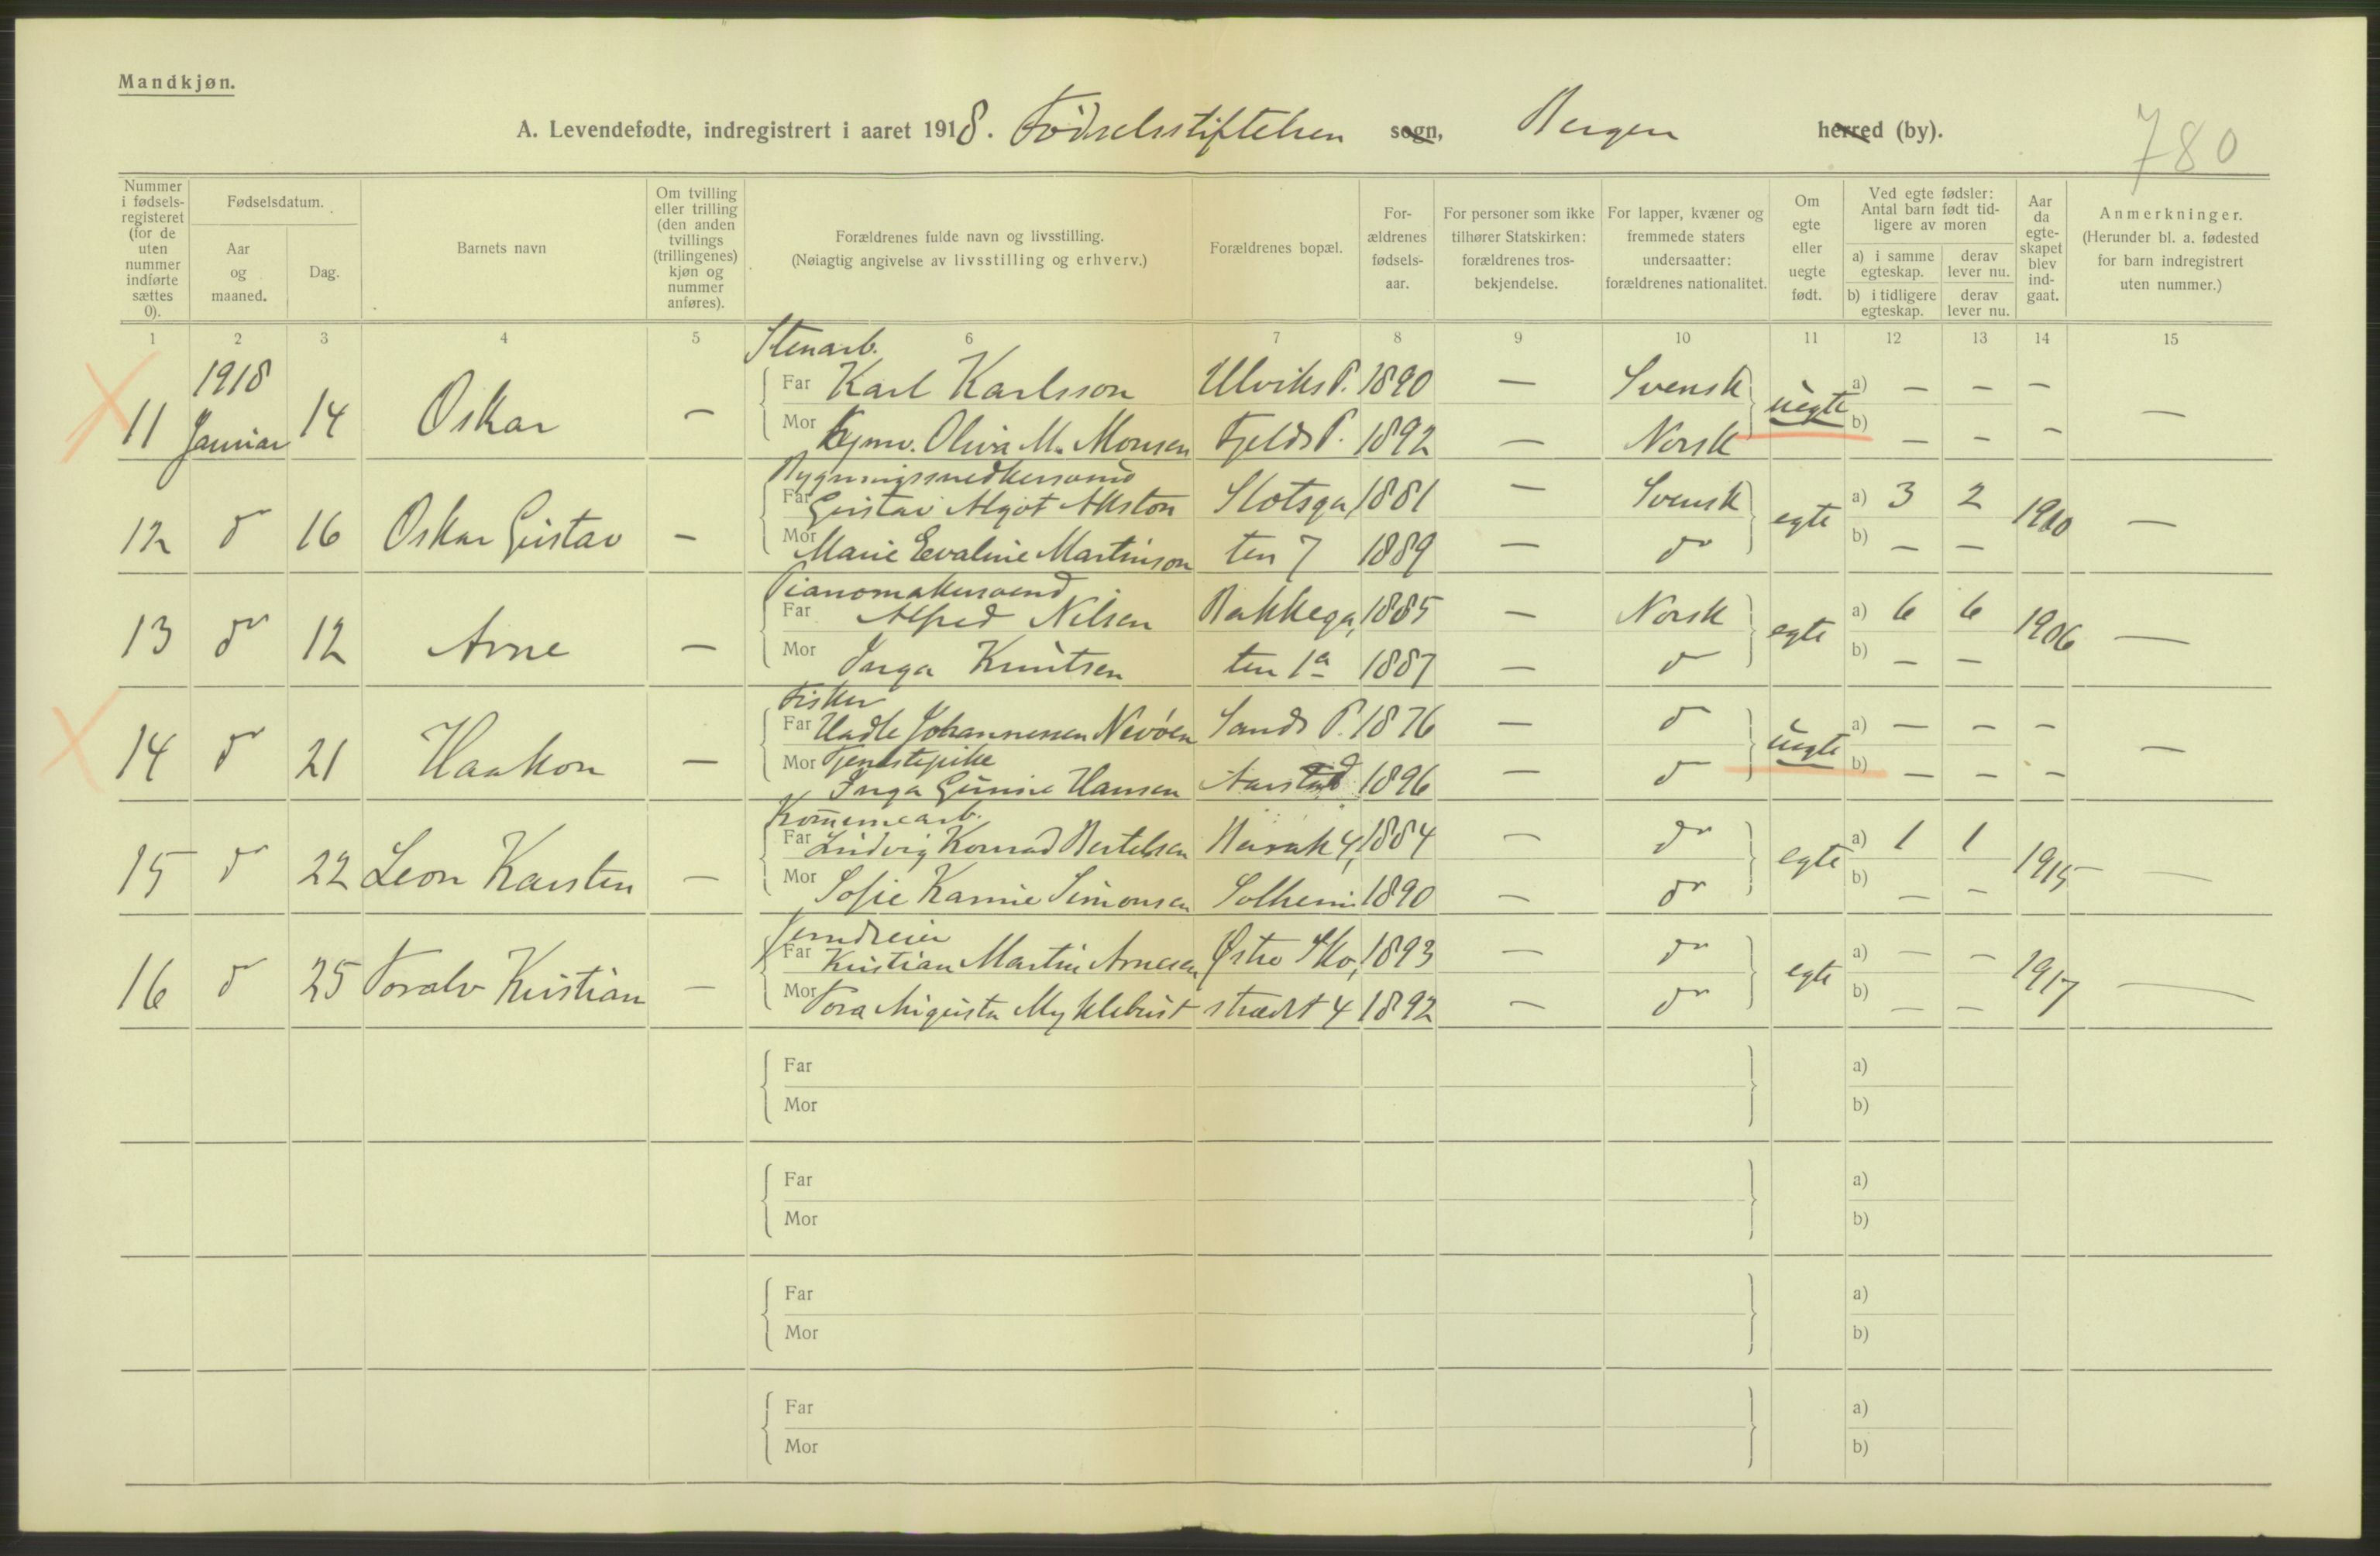 Mandkjøn.
A. Levendefødte, indregistrert i aaret 1918. Födselsstiftelsen sogn, Bergen herred (by).
780
Nummer i fødsels-registeret (for de uten nummer indførte sættes 0).
Fødselsdatum.
Aar og maaned.
Dag.
Barnets navn
Om tvilling eller trilling (den anden tvillings (trillingenes) kjøn og nummer anføres).
Forældrenes fulde navn og livsstilling.
(Nøiagtig angivelse av livsstilling og erhverv.)
Forældrenes bopæl.
For-ældrenes fødsels-aar.
For personer som ikke tilhører Statskirken: forældrenes tros-bekjendelse.
For lapper, kvæner og fremmede staters undersaatter: forældrenes nationalitet.
Om egte eller uegte født.
Ved egte fødsler: Antal barn født tid-ligere av moren
a) i samme egteskap.
derav lever nu.
b) i tidligere egteskap.
derav lever nu.
Aar da egte-skapet blev ind-gaat.
Anmerkninger.
(Herunder bl. a. fødested for barn indregistrert uten nummer.)
1 2 3 4 5 6 7 8 9 10 11 12 13 14 15
Stenarb.
1918
Far Karl Karlsson Ulviks P. 1890 — Svensk a) — — —
11 Januar 14 Oskar — uegte —
Mor Oliva M. Monsen Fjelds P. 1892 — Norsk b) — — —
Bygningssnedkersvend
Far Gustav Algot Alkston Slotsga, 1881 — Svensk a) 3 2
12 d 16 Oskar Gustav — egte 1910 —
Mor Marie Evaline Martinson ten 7 1889 — d b) — —
Pianomakersvend
Far Alfred Nilsen Bakkega, 1885 — Norsk a) 6 6
13 d 12 Arne — egte 1906 —
Mor Inga Knutsen ten 1a 1887 — d b) — —
Fisker
Far Johannessen Nevöen Sands P. 1876 — d a) — — —
14 d 21 Haakon — uegte —
Mor Tjenestepike
Inga Hansen Aarstad 1896 — d b) — — —
Far Ludvig Konrad Bertelsen 4, 1884 — d a) 1 1
15 d 22 Leon Karsten — egte 1915 —
Mor Sofie Simonsen Solheim 1890 — d b) — —
Jerndreier
Far Kristian Martin Arnesen Østre Sko, 1893 — d a) — —
16 d 25 Toralv Kristian — egte 1917 —
Mor Tora Augusta Myklebust strædet 4 1892 — d b) — —
Far a)
Mor b)
Far a)
Mor b)
Far a)
Mor b)
Far a)
Mor b)